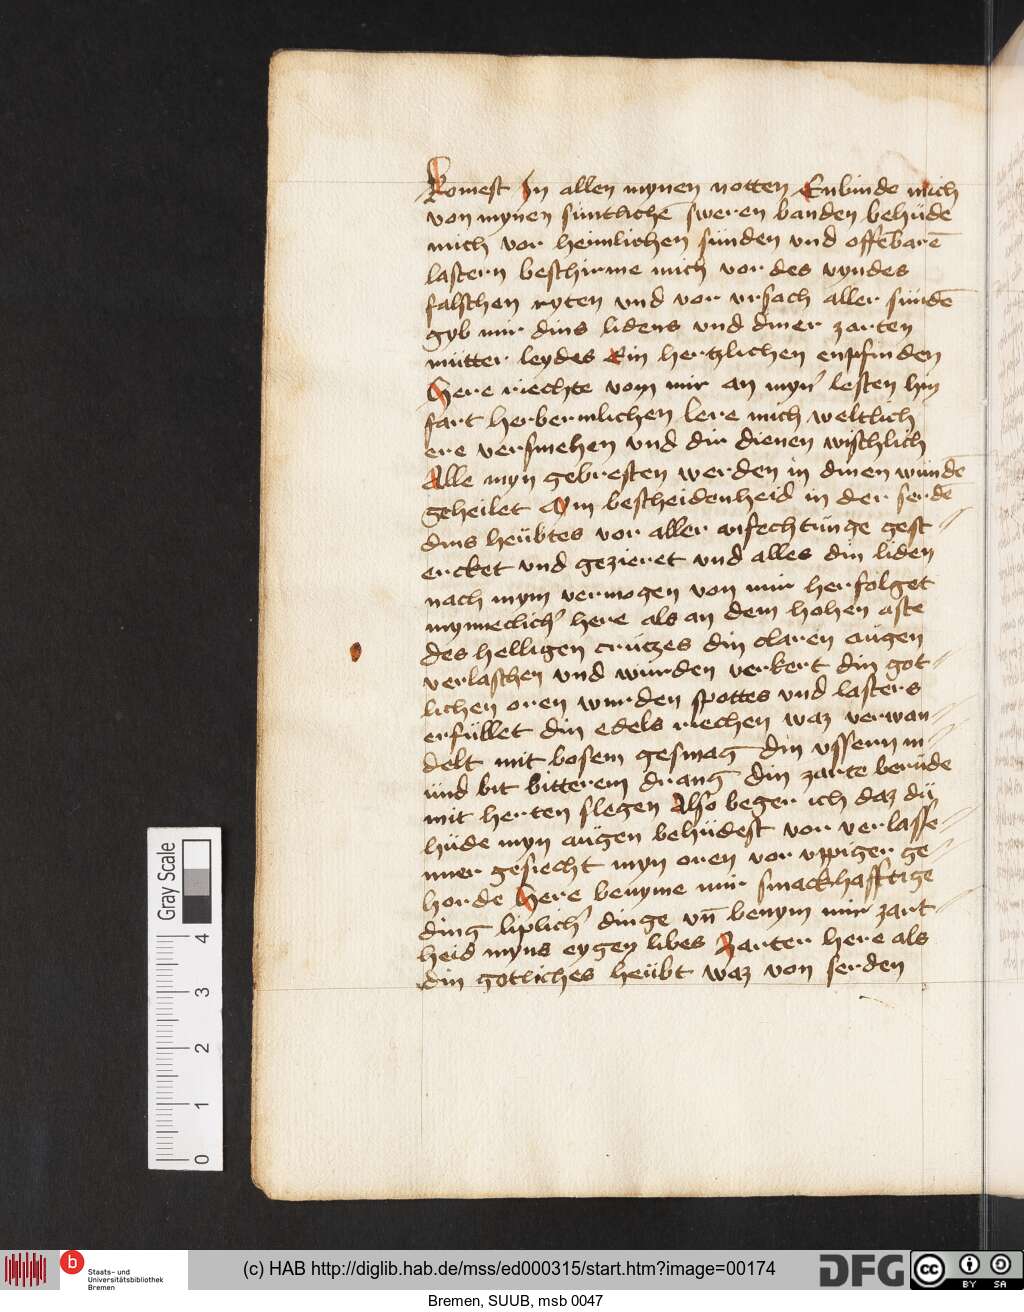 komest In allen mynen notten Enbinde mich
von mynen süntlichē sweren banden behüde
mich vor heimlichen sünden vnd offēbarē
lastern beschirme mich vor des vyndes
falschen ryten vnd vor vrsach aller sündē
gyb mir dins lidens vnd diner zarten
mütter leydes Ein hertzlichen enpfinden
Here riechte vom mir an myn' lesten hin
fart herbermlichen lere mich weltlich
ere versmehen vnd dir dienen
Alle myn gebresten werden in dinen wündē
geheilet Mym bescheidenheid in der serdē
dins heübtes vor aller anfechtünge gest
ercket vnd gezieret vnd alles din liden
nach mym vermogen von mir herfolget
mynneclich' here als an dem hohen aste
des helligen crützes din claren aügen
verlaschen vnd würden verkert din got
lichen oren wurden spottes vnd lasters
erfüllet din edels riechen waz verwan
delt mit bosem gesmag din vssern m
ünd bit bitterem drang din zarte berüde
mit herten slegen Also beger ich daz dü
hüde myn aügen behüdest vor verlasse
nner gesiecht myn oren vor vppiger ge
horde Here benyme mir smackhafftige
ding liplich' dinge vn̄ benym mir zart
heid myns eygen libes Zarter here als
din gotliches heübt waz von serden
Gray Scale
4
3
2
1
0
b
Staats- und
Universitätsbibliothek
Bremen
(c) HAB http://diglib.hab.de/mss/ed000315/start.htm?image=00174
DFG
cc
BY SA
Bremen, SUUB, msb 0047